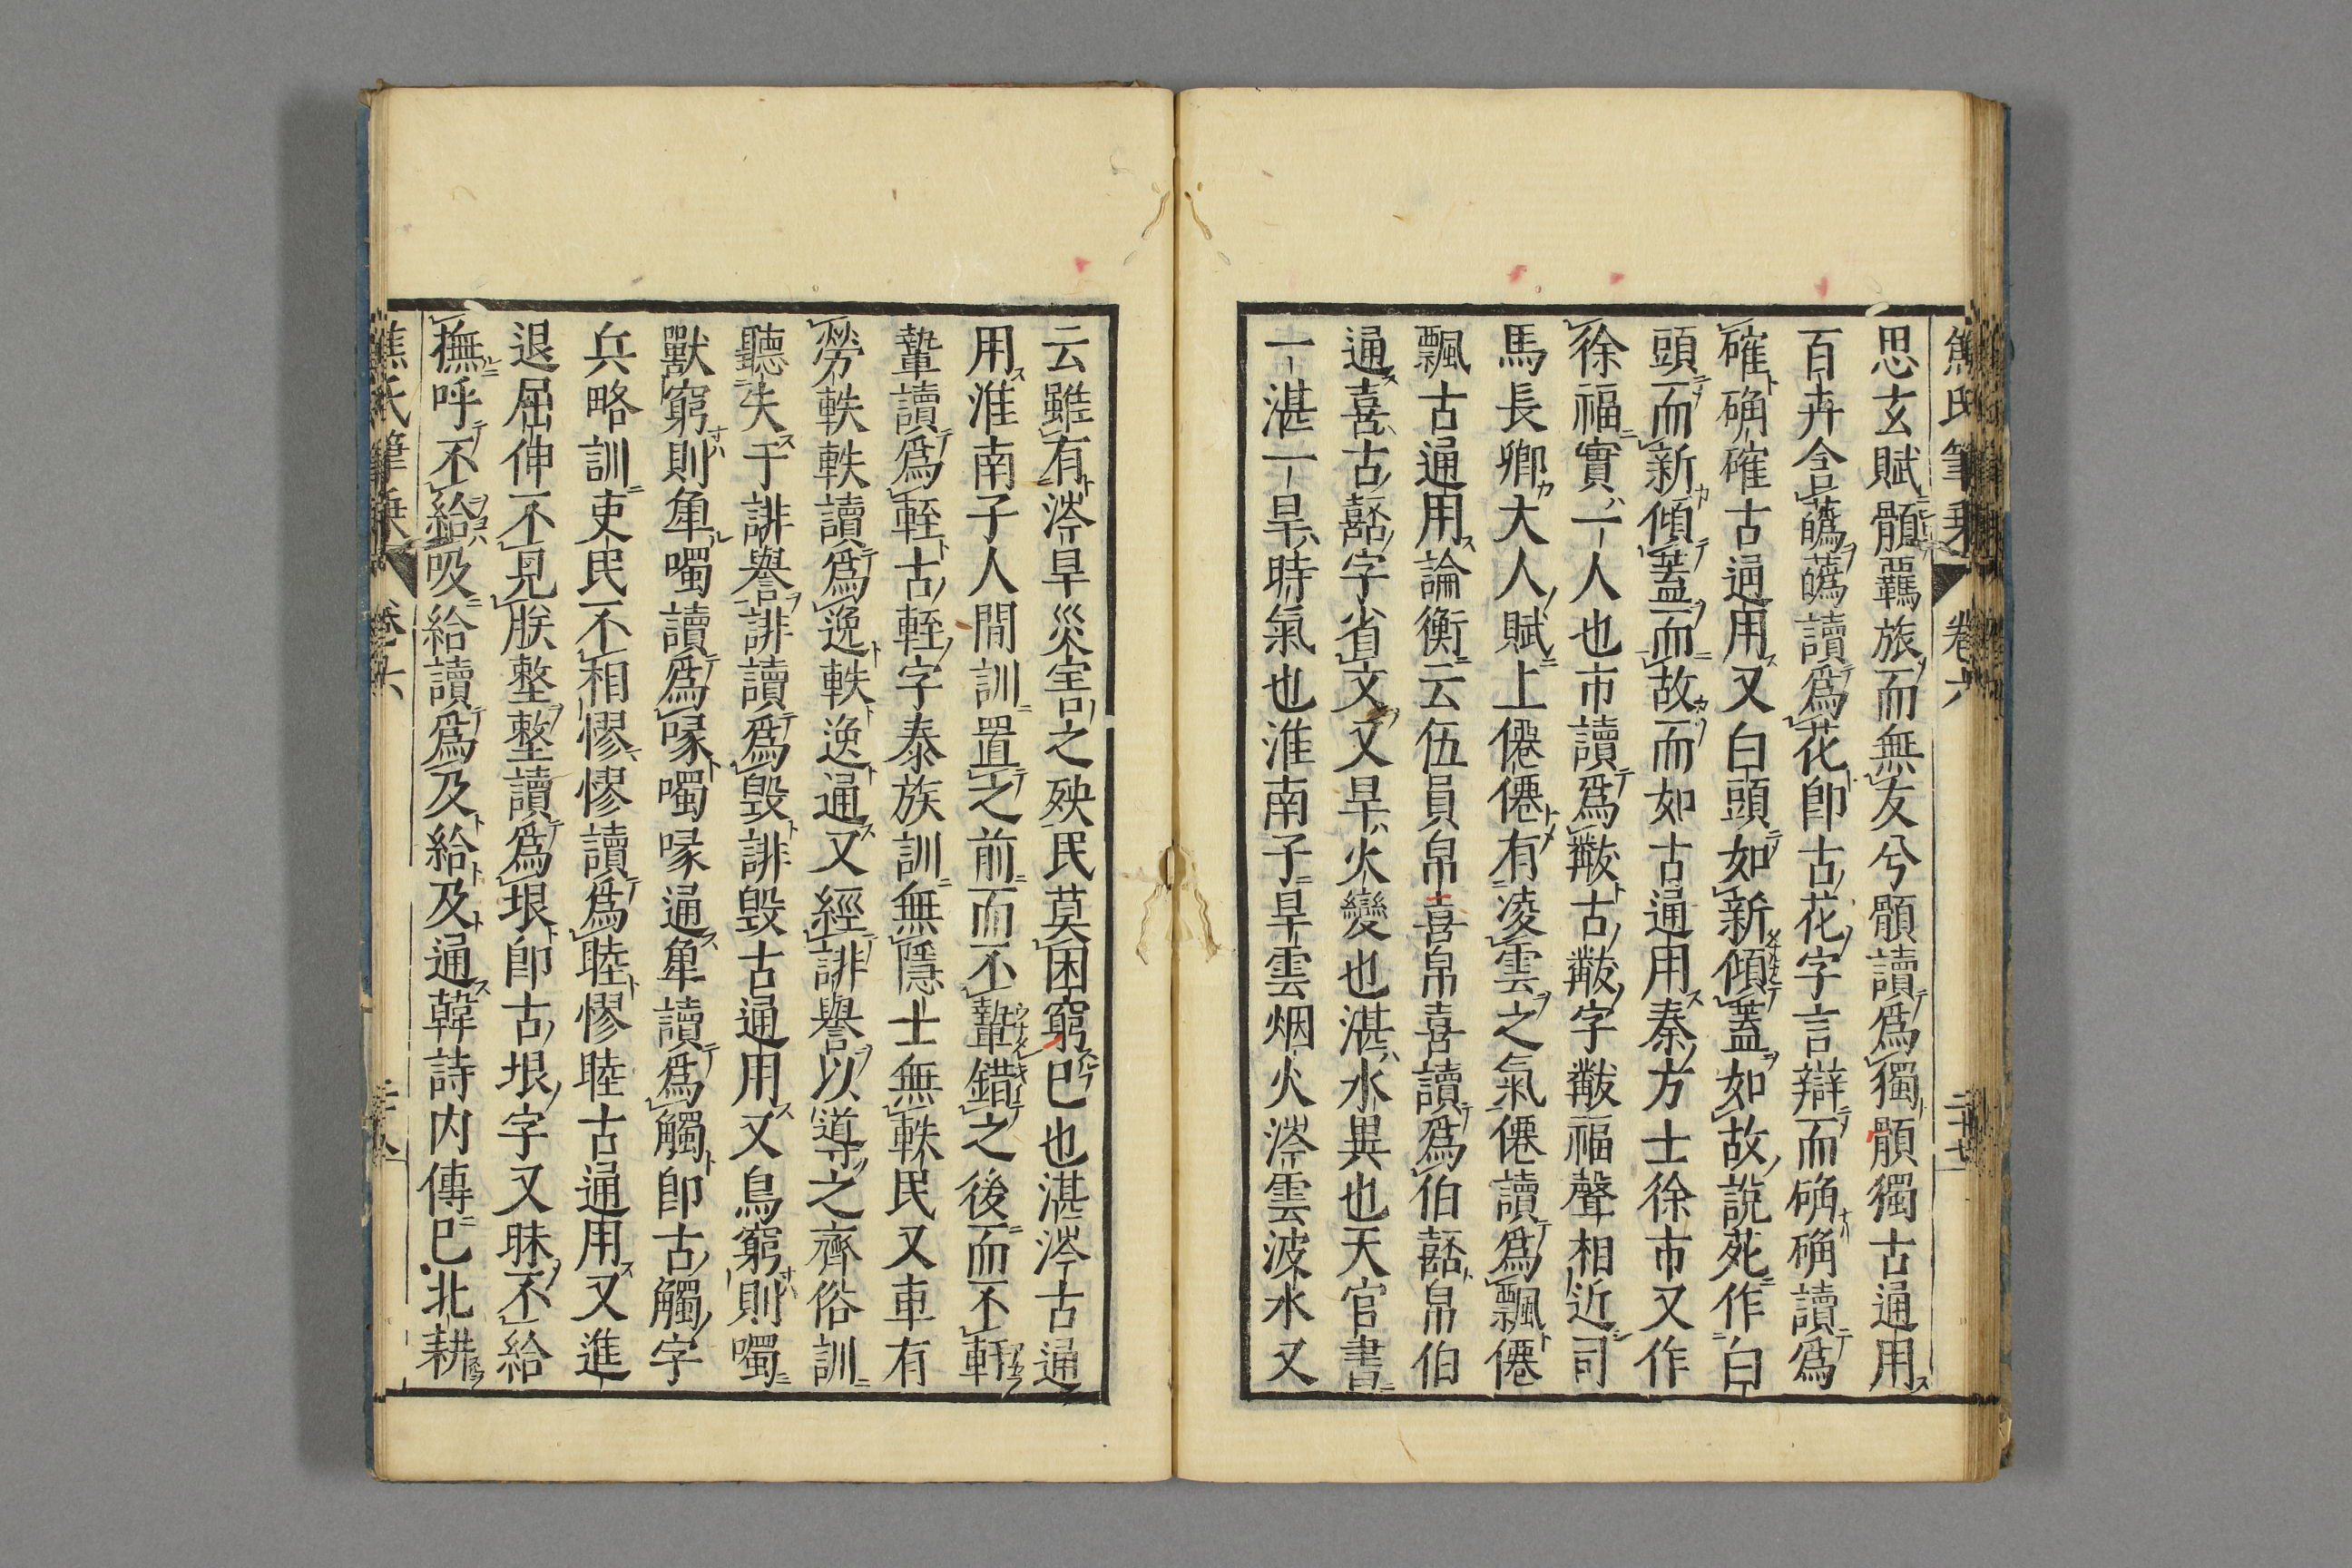 焦氏筆乗 卷六 二十七
思玄賦顝羈旅而無友兮顝讀爲獨顝獨古通用
百卉含蘤蘤讀爲花卽古花字言辯而确确讀爲
確确確古通用又白頭如新傾蓋如故說苑作白
頭而新傾蓋而故而如古通用秦方士徐市又作
徐福實一人也市讀爲黻古黻字黻福聲相近司
馬長卿大人賦上僊僊有凌雲之氣僊讀爲飄僊
飄古通用論衡云伍員帛喜帛喜讀爲伯嚭帛伯
通喜古嚭字省文又旱火變也湛水異也天官書
一湛一旱時氣也淮南子旱雲烟火涔雲波水又
云雖有涔旱災害之殃民莫困窮巳也湛涔古通
用淮南子人閒訓置之前而不蟄錯之後而不軒
讀爲輊古輊字泰族訓無隱士無軼民又車有
勞軼軼讀爲逸軼逸通又經誹譽以導之齊俗訓
聽失于誹譽誹讀爲毀誹毀古通用又鳥窮則噣
獸窮則噣讀爲喙噣喙通讀爲觸卽古觸字
兵略訓吏民不相憀憀讀爲睦憀睦古通用又進
退屈伸不見朕讀爲垠卽古垠字又昧不給
撫呼不給吸給讀爲及給及通韓詩内傳巳北耕
焦氏筆乗 卷六 二十八